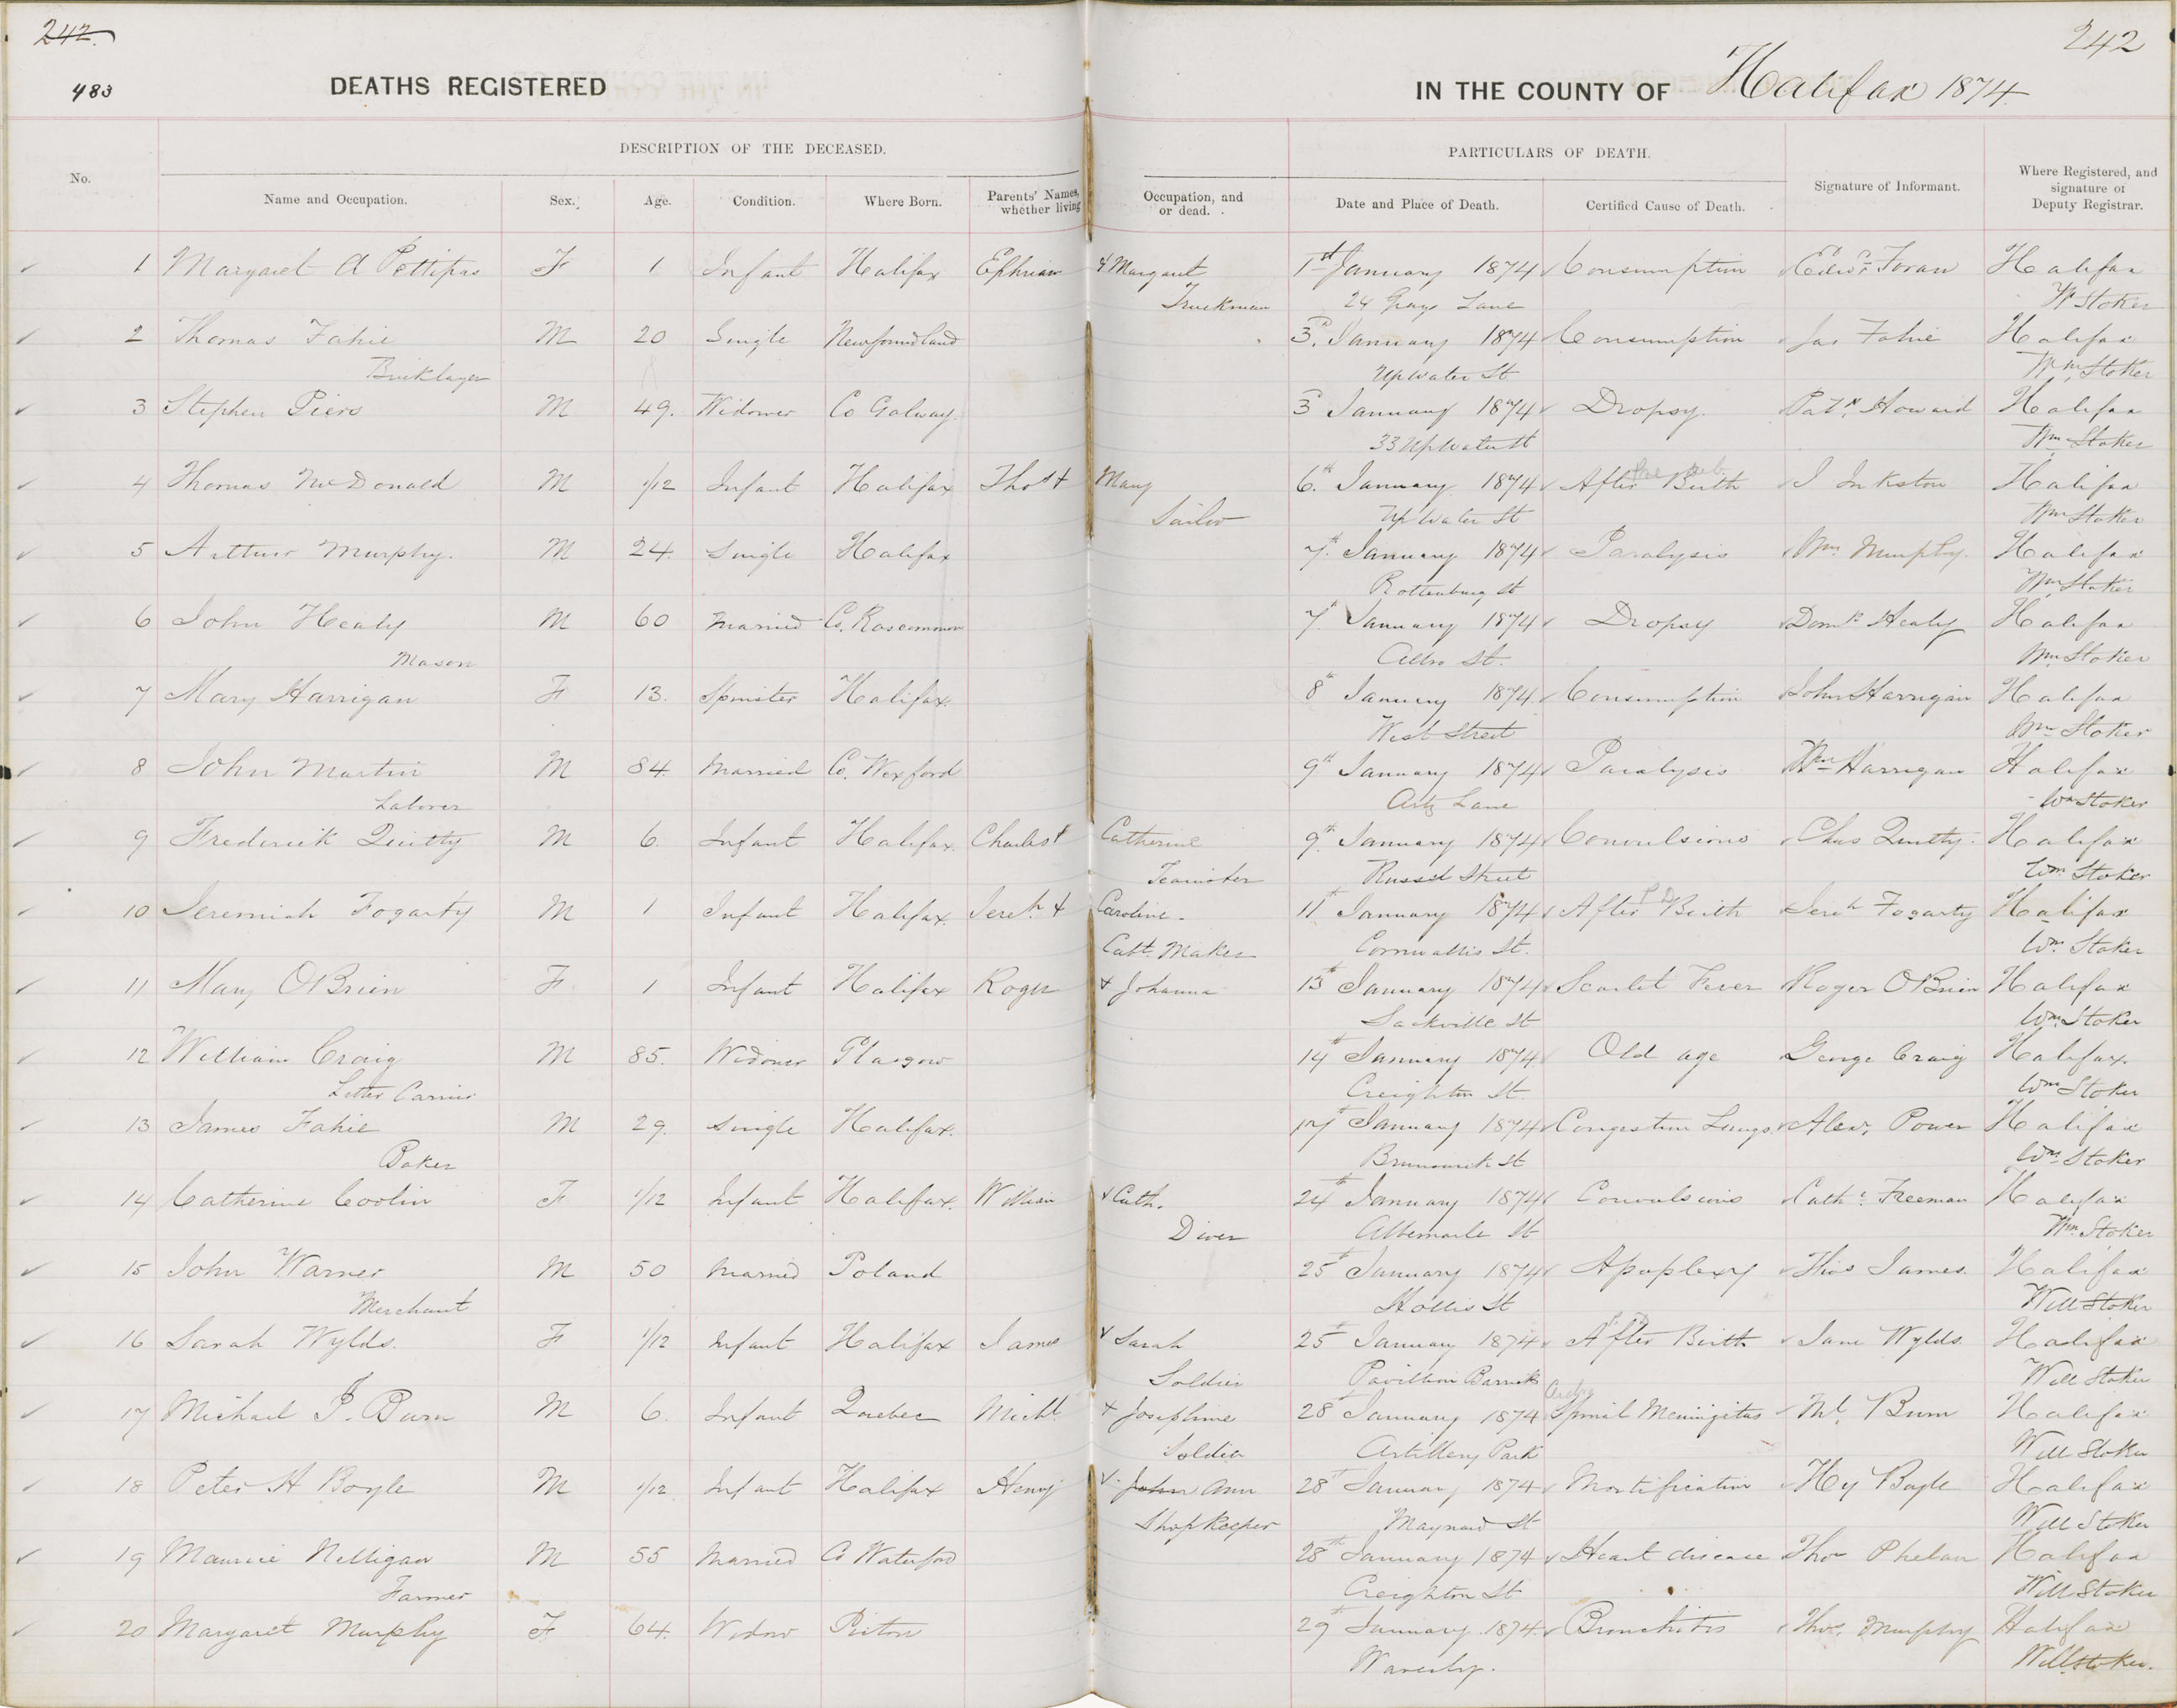 242.
242
483
DEATHS REGISTERED
IN THE COUNTY OF Halifax 1874
DESCRIPTION OF THE DECEASED.
PARTICULARS OF DEATH.
No.
Name and Occupation.
Sex.
Age.
Condition.
Where Born.
Parents' Names, whether living
Occupation, and or dead.
Date and Place of Death.
Certified Cause of Death.
Signature of Informant.
Where Registered, and signature of Deputy Registrar.
1 Margaret A Pettipas F 1 Infant Halifax Ephriam & Margaret 1st January 1874 Consumption Edwd Foran Halifax
Truckman 24 Grays Lane Wm Stoker
2 Thomas Fahie M 20 Single Newfoundland 3d January 1874 Consumption Jas Fahie Halifax
Bricklayer Up Water St Wm Stoker
3 Stephen Piers M 49. Widower Co Galway 3d January 1874 Dropsy. Patk Howard Halifax
33 Up Water St Wm Stoker
4 Thomas McDonald M 1/12 Infant Halifax Thos & Mary 6th January 1874 After Birth J Inkston Halifax
Sailor Up Water St Wm Stoker
5 Arthur Murphy. M 24. Single Halifax 7th January 1874 Paralysis Wm Murphy. Halifax
Rottenburg St Wm Stoker
6 John Healy M 60 Married Co. Roscommon 7th January 1874 Dropsy Domk Healy Halifax
Mason Albro St. Wm Stoker
7 Mary Harrigan F 13. Spinster Halifax. 8th January 1874 Consumption John Harrigan Halifax
West Street Wm Stoker
8 John Martin M 84. Married Co. Wexford 9th January 1874 Paralysis Wm Harrigan Halifax
Laborer Artz Lane Wm Stoker
9 Frederick Quilty M 6. Infant Halifax. Charles & Catherine 9th January 1874 Convulsions Chas Quilty. Halifax
Teamster Russel Street Wm Stoker
10 Jeremiah Fogarty M 1 Infant Halifax. Jereh & Caroline 11th January 1874 After Birth Jereh Fogarty Halifax
Cabt. Maker Cornwallis St. Wm. Stoker
11 Mary OBrien F 1 Infant Halifax Roger & Johanna 13th January 1874 Scarlet Fever Roger OBrien Halifax
Sackville St Wm. Stoker
12 William Craig M 85. Widower Glasgow 14th January 1874 Old age George Craig Halifax.
Letter Carrier Creighton St. Wm Stoker
13 James Fahie M 29. Single Halifax. 17th January 1874 Congestion Lungs. Alexr. Power Halifax
Baker Brunswick St Wm Stoker
14 Catherine Coolin F 1/12 Infant Halifax. William & Cath. 24th January 1874 Convulsions Cathe Freeman Halifax
Diver Albemarle St Wm. Stoker
15 John Warner M 50 Married Poland 25th January 1874 Apoplexy Thos James. Halifax
Merchant Hollis St Will Stoker
16 Sarah Wylds. F 1/12 Infant Halifax James & Sarah 25th January 1874 After Birth Jane Wylds. Halifax
Soldier Pavillion Barracks Will Stoker
17 Michael J. Burn M 6. Infant Quebec Michl. & Josephine 28th January 1874 Spinal Meningitus Ml. Burn Halifax
Soldier Artillery Park Will Stoker
18 Peter H Boyle M 1/12 Infant Halifax Henry & John Ann 28th January 1874 Mortification Hy Boyle Halifax
Shopkeeper Maynard St Will Stoker
19 Maurice Nelligan M 55 Married Co Waterford 28th January 1874 Heart disease Thos Phelan Halifax
Farmer Creighton St Will Stoker
20 Margaret Murphy F 64. Widow Pictou 29th January 1874 Bronchitis Thos. Murphy Halifax
Waverly. Will Stoker.